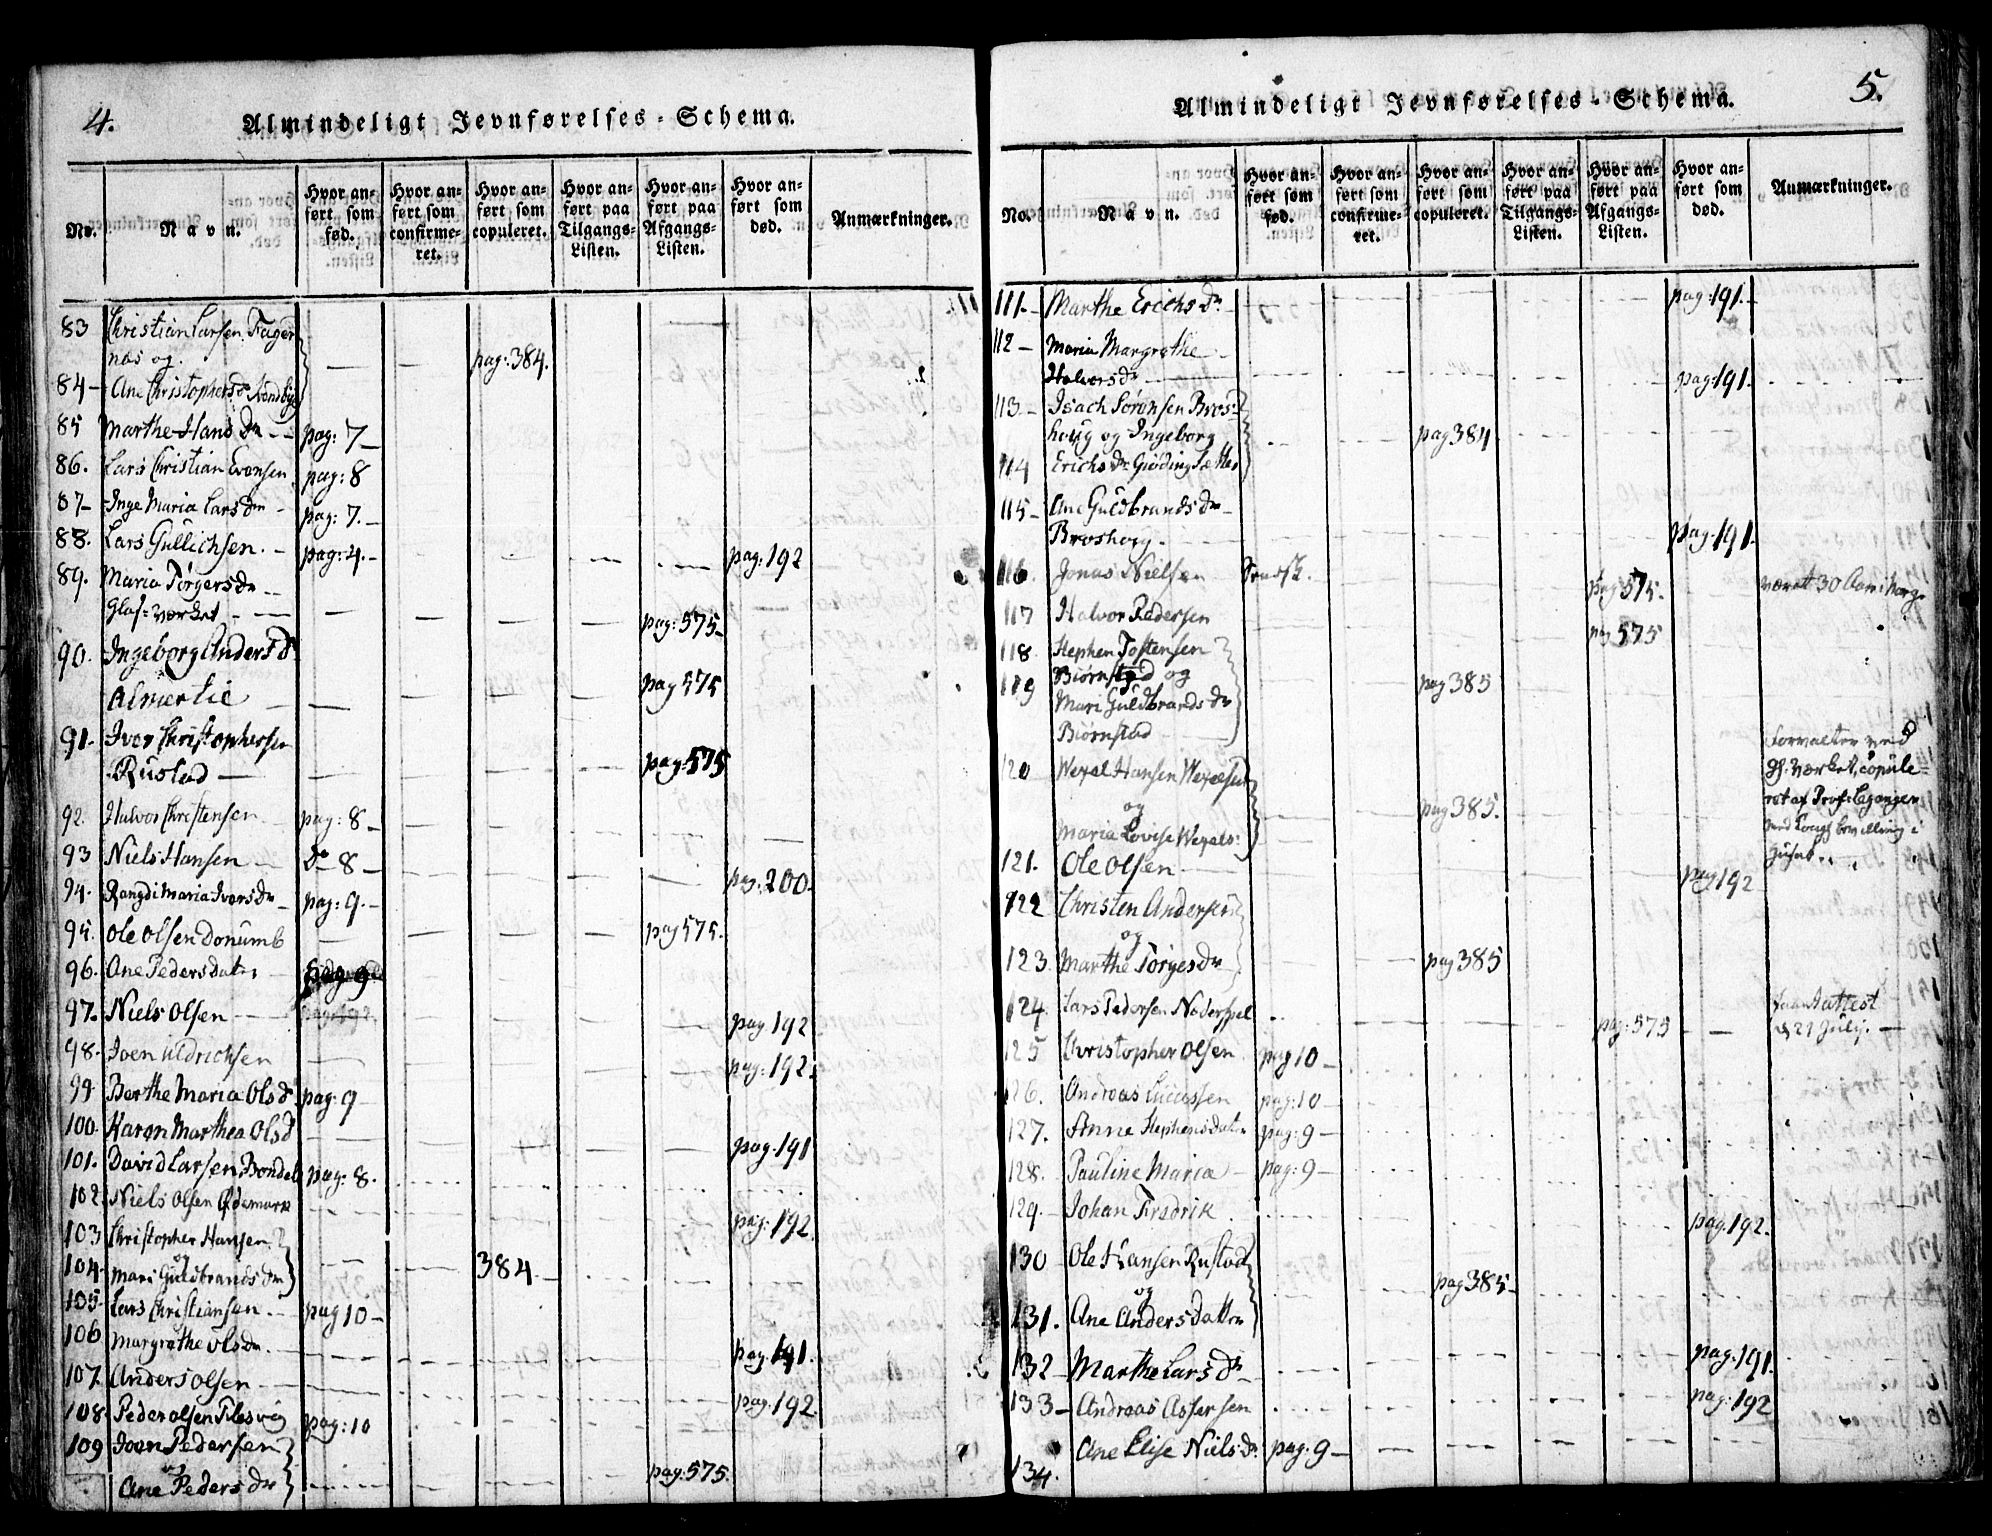 4.
Almindeligt Jevnførelses-Schema.
No. Navn. Hvor anført som fød. Hvor anført som confirmeret. Hvor anført som copuleret. Hvor anført paa Tilgangs-Listen. Hvor anført paa Afgangs-Listen. Hvor anført som død. Anmærkninger.
83 Christian Larsen Fager
næs og pag: 384.
84 Ane Christophersdr
85 Marthe Hans Dr pag: 7
86. Lars Christian Evensen pag: 8
87 Inge Maria Lars dr pag: 7.
88. Lars Gullichsen. pag: 4. pag: 192
89. Maria Torgers Dr
Glas-værket pag: 575
90. Ingeborg Anders D
pag 575
91. Iver Christophersen
Rustad pag: 575
92. Halvor Christensen pag: 8
93 Niels Hansen Do 8
94. Rangdi Maria Ivers Dr pag: 9. pag. 200.
95. Ole Olsen Donumb pag 575.
96. Ane Pedersdatr pag 9
97. Niels Olsen pag. 192
98. Joen Uldrichsen pag: 192
99 Berthe Maria Ols d pag: 9
100. Karen Marthea Olsd pag. 191
101. David Larsen Bondel pag: 8.
102 Niels Olsen Ødemark pag: 192.
103 Christopher Hansen
og
104 Mari Guldbrands Dr 384
105 Lars Christiansen pag 10
106 Margrethe Olsdr. pag. 191.
107 Anders Olsen pag. 192
108 Peder Olsen pag: 10
109 Joen Pedersen
og
Ane Peders Dr pag: 575.
5.
Almindeligt Jevnførelses-Schema.
No. Navn. Hvor anført som fød. Hvor anført som confirmeret. Hvor anført som copuleret. Hvor anført paa Tilgangs-Listen. Hvor anført paa Afgangs-Listen. Hvor anført som død. Anmærkninger.
111. Marthe Erichs Dr pag: 191.
112 Maria Margrethe
Halvors Dr pag: 191.
113 Isach Sørensen Bros
houg og Ingeborg pag 384
114 Erichs Dr
115 Ane Guldbrands Dr
Broshoug. pag. 191.
116. Jonas Nielsen pag 575. været 30 Aar i Norge
117 Halvor Pedersen pag 575
118. Stephen Tostensen
Biørnstad og
119 Mari Guldbrands Dr pag 385
Biørnstad
120 Wexel Hansen Wexelsen Forvalter ved
og Gl. værket, copule-
Maria Lovise Wexels: pag 385. ret af Prof:
121. Ole Olsen pag 192
122 Christen Andersen
og
123. Marthe Torgesdr pag 385
124. Lars Pedersen pag: 575 Attest
21 Julij.
125 Christopher Olsen pag 10
126. Andreas Lucassen pag: 10
127. Anne Stephensdatr pag: 9
128. Pauline Maria pag: 9
129. Johan Fredrik pag 192.
130 Ole Hansen Rustad
og pag 385
131. Ane Andersdatter
132 Marthe Lars Dr pag. 191
133 Andreas Assersen pag: 192
134. Ane Elise Niels Dr pag: 9